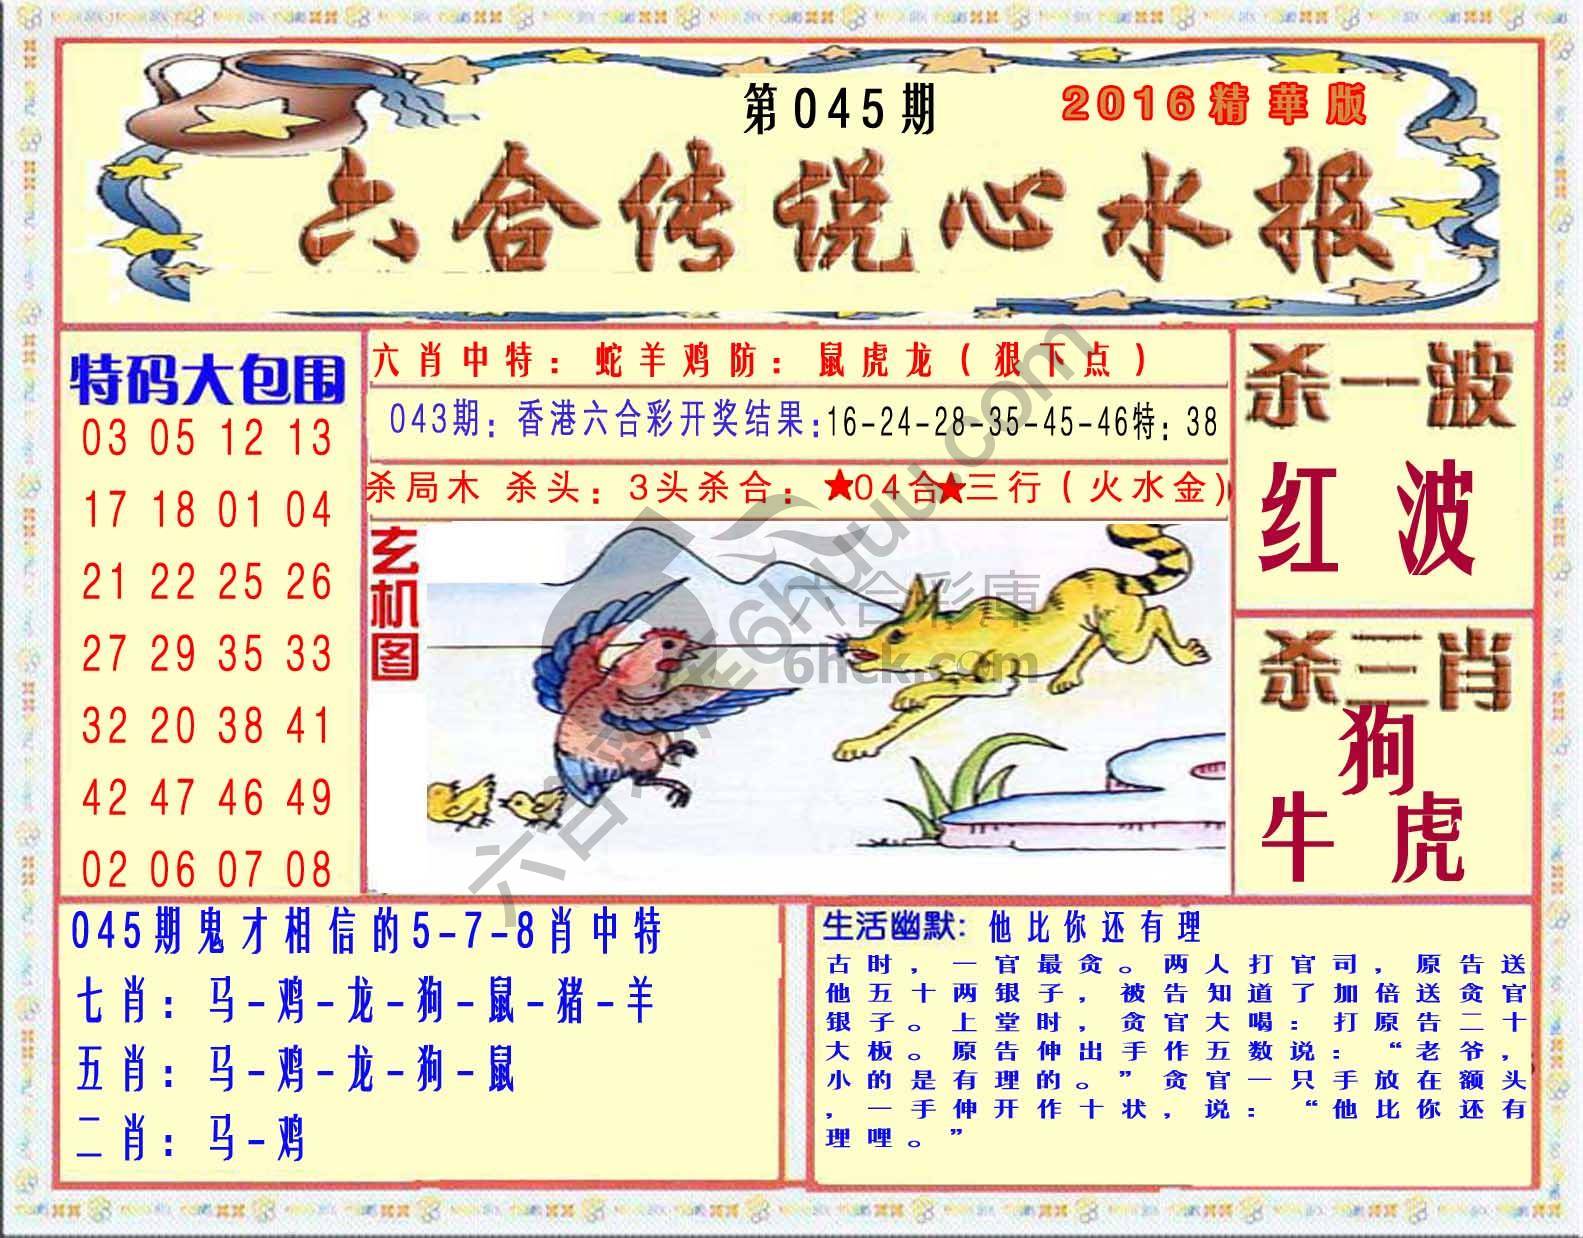 第045期
2016精華版
六合传说心水报
特码大包围
03 05 12 13
17 18 01 04
21 22 25 26
27 29 35 33
32 20 38 41
42 47 46 49
02 06 07 08
六肖中特：蛇羊鸡防：鼠虎龙（狠下点）
043期：香港六合彩开奖结果：16-24-28-35-45-46特：38
杀局木 杀头：3头杀合：★04合★三行（火水金）
玄机图
杀一波
红波
杀三肖
狗
牛 虎
045期鬼才相信的5-7-8肖中特
七肖：马-鸡-龙-狗-鼠-猪-羊
五肖：马-鸡-龙-狗-鼠
二肖：马-鸡
生活幽默：他比你还有理
古时，一官最贪。两人打官司，原告送
他五十两银子，被告知道了加倍送贪官
银子。上堂时，贪官大喝：打原告二十
大板。原告伸出手作五数说：“老爷，
小的是有理的。”贪官一只手放在额头
，一手伸开作十状，说：“他比你还有
理哩。”
六合彩庫
6hck.com